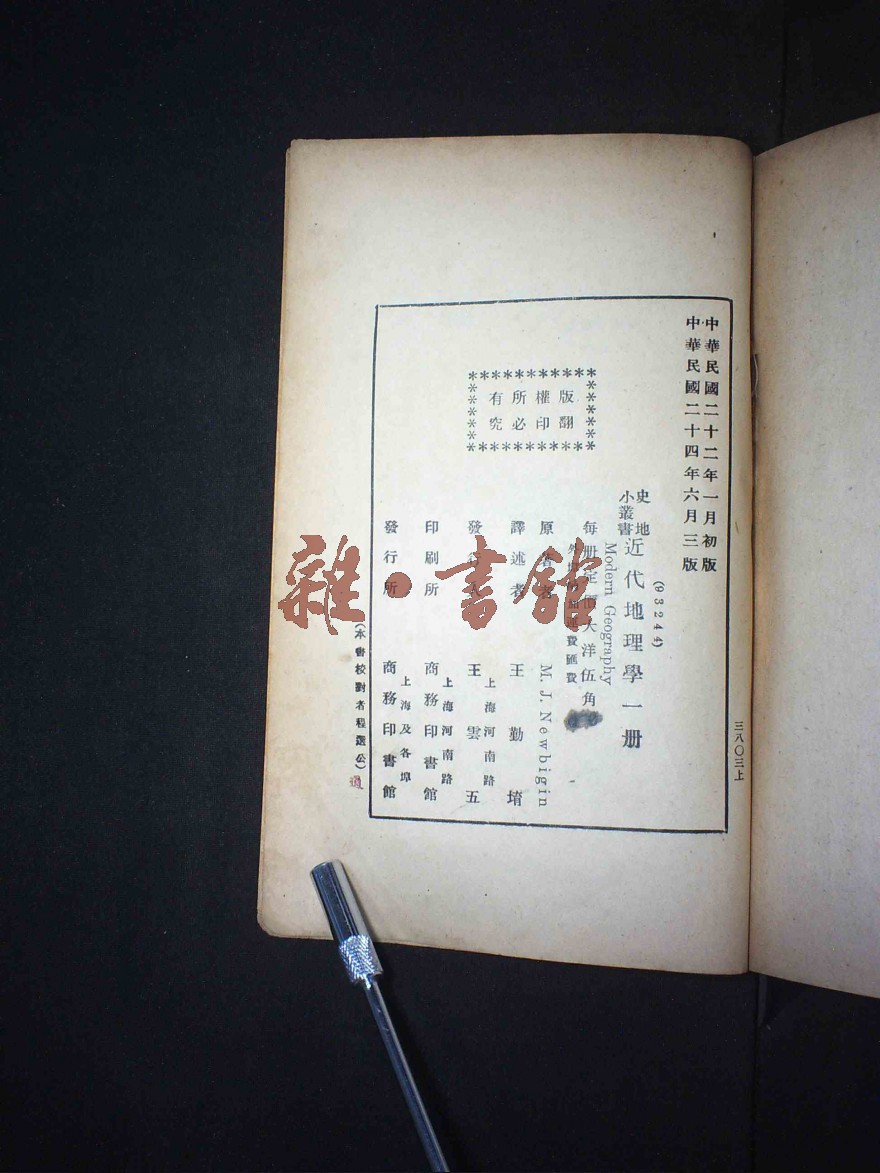 中華民國二十二年一月初版
中華民國二十四年六月三版
三八〇三上
(93244)
史地小叢書
近代地理學一册
Modern Geography
每册定價大洋伍角
外埠酌加運費匯費
版權所有
翻印必究
原著者 M. J. Newbigin
譯述者 王勤堉
發行人 王雲五
上海河南路
印刷所 商務印書館
上海河南路
發行所 商務印書館
上海及各埠
(本書校對者程選公)
雜·書館